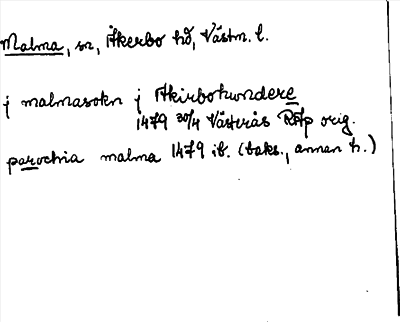 Malma, sn, Åkerbo hd, Västm. l.
j malmasokn j Akirbohwndere
1479 30/4 Västerås RAp orig.
parochia malma 1479 ib. (baks., annan h.)